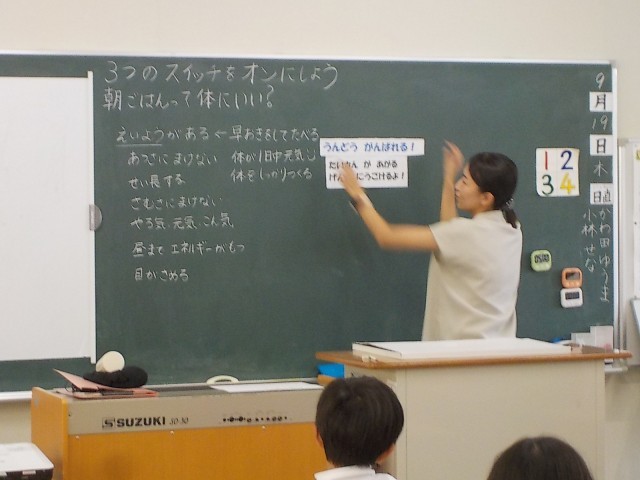 3つのスイッチをオンにしよう
朝ごはんって体にいい?
えいようがある ← 早おきをしてたべる
あつさにまけない 体が1日中元気
せい長する 体をしっかりつくる
さむさにまけない
やる気、元気、こん気
昼まで エネルギーがもつ
目がさめる
うんどう がんばれる!
たいおん が あがる
げんきにうごけるよ!
9
月
19
日
木
日直
かわ田ゆうま
小林せな
1 2
3 4
SUZUKI